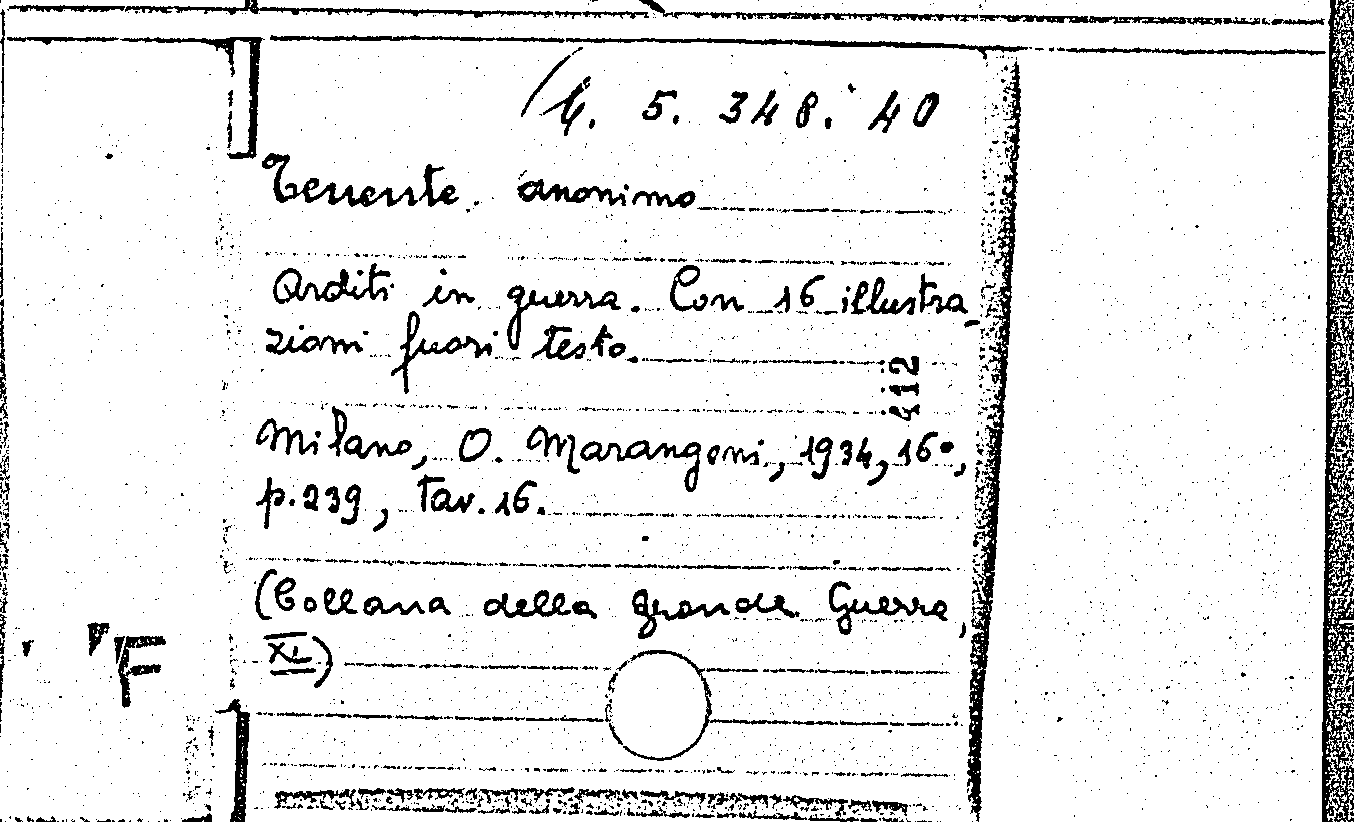 G. 5. 348. 40
Tenente anonimo
Arditi in guerra. Con 16 illustra_
zioni fuori testo.
412
Milano, O. Marangoni, 1934, 16°,
p. 239, tav. 16.
(Collana della grande Guerra,
XI)
F